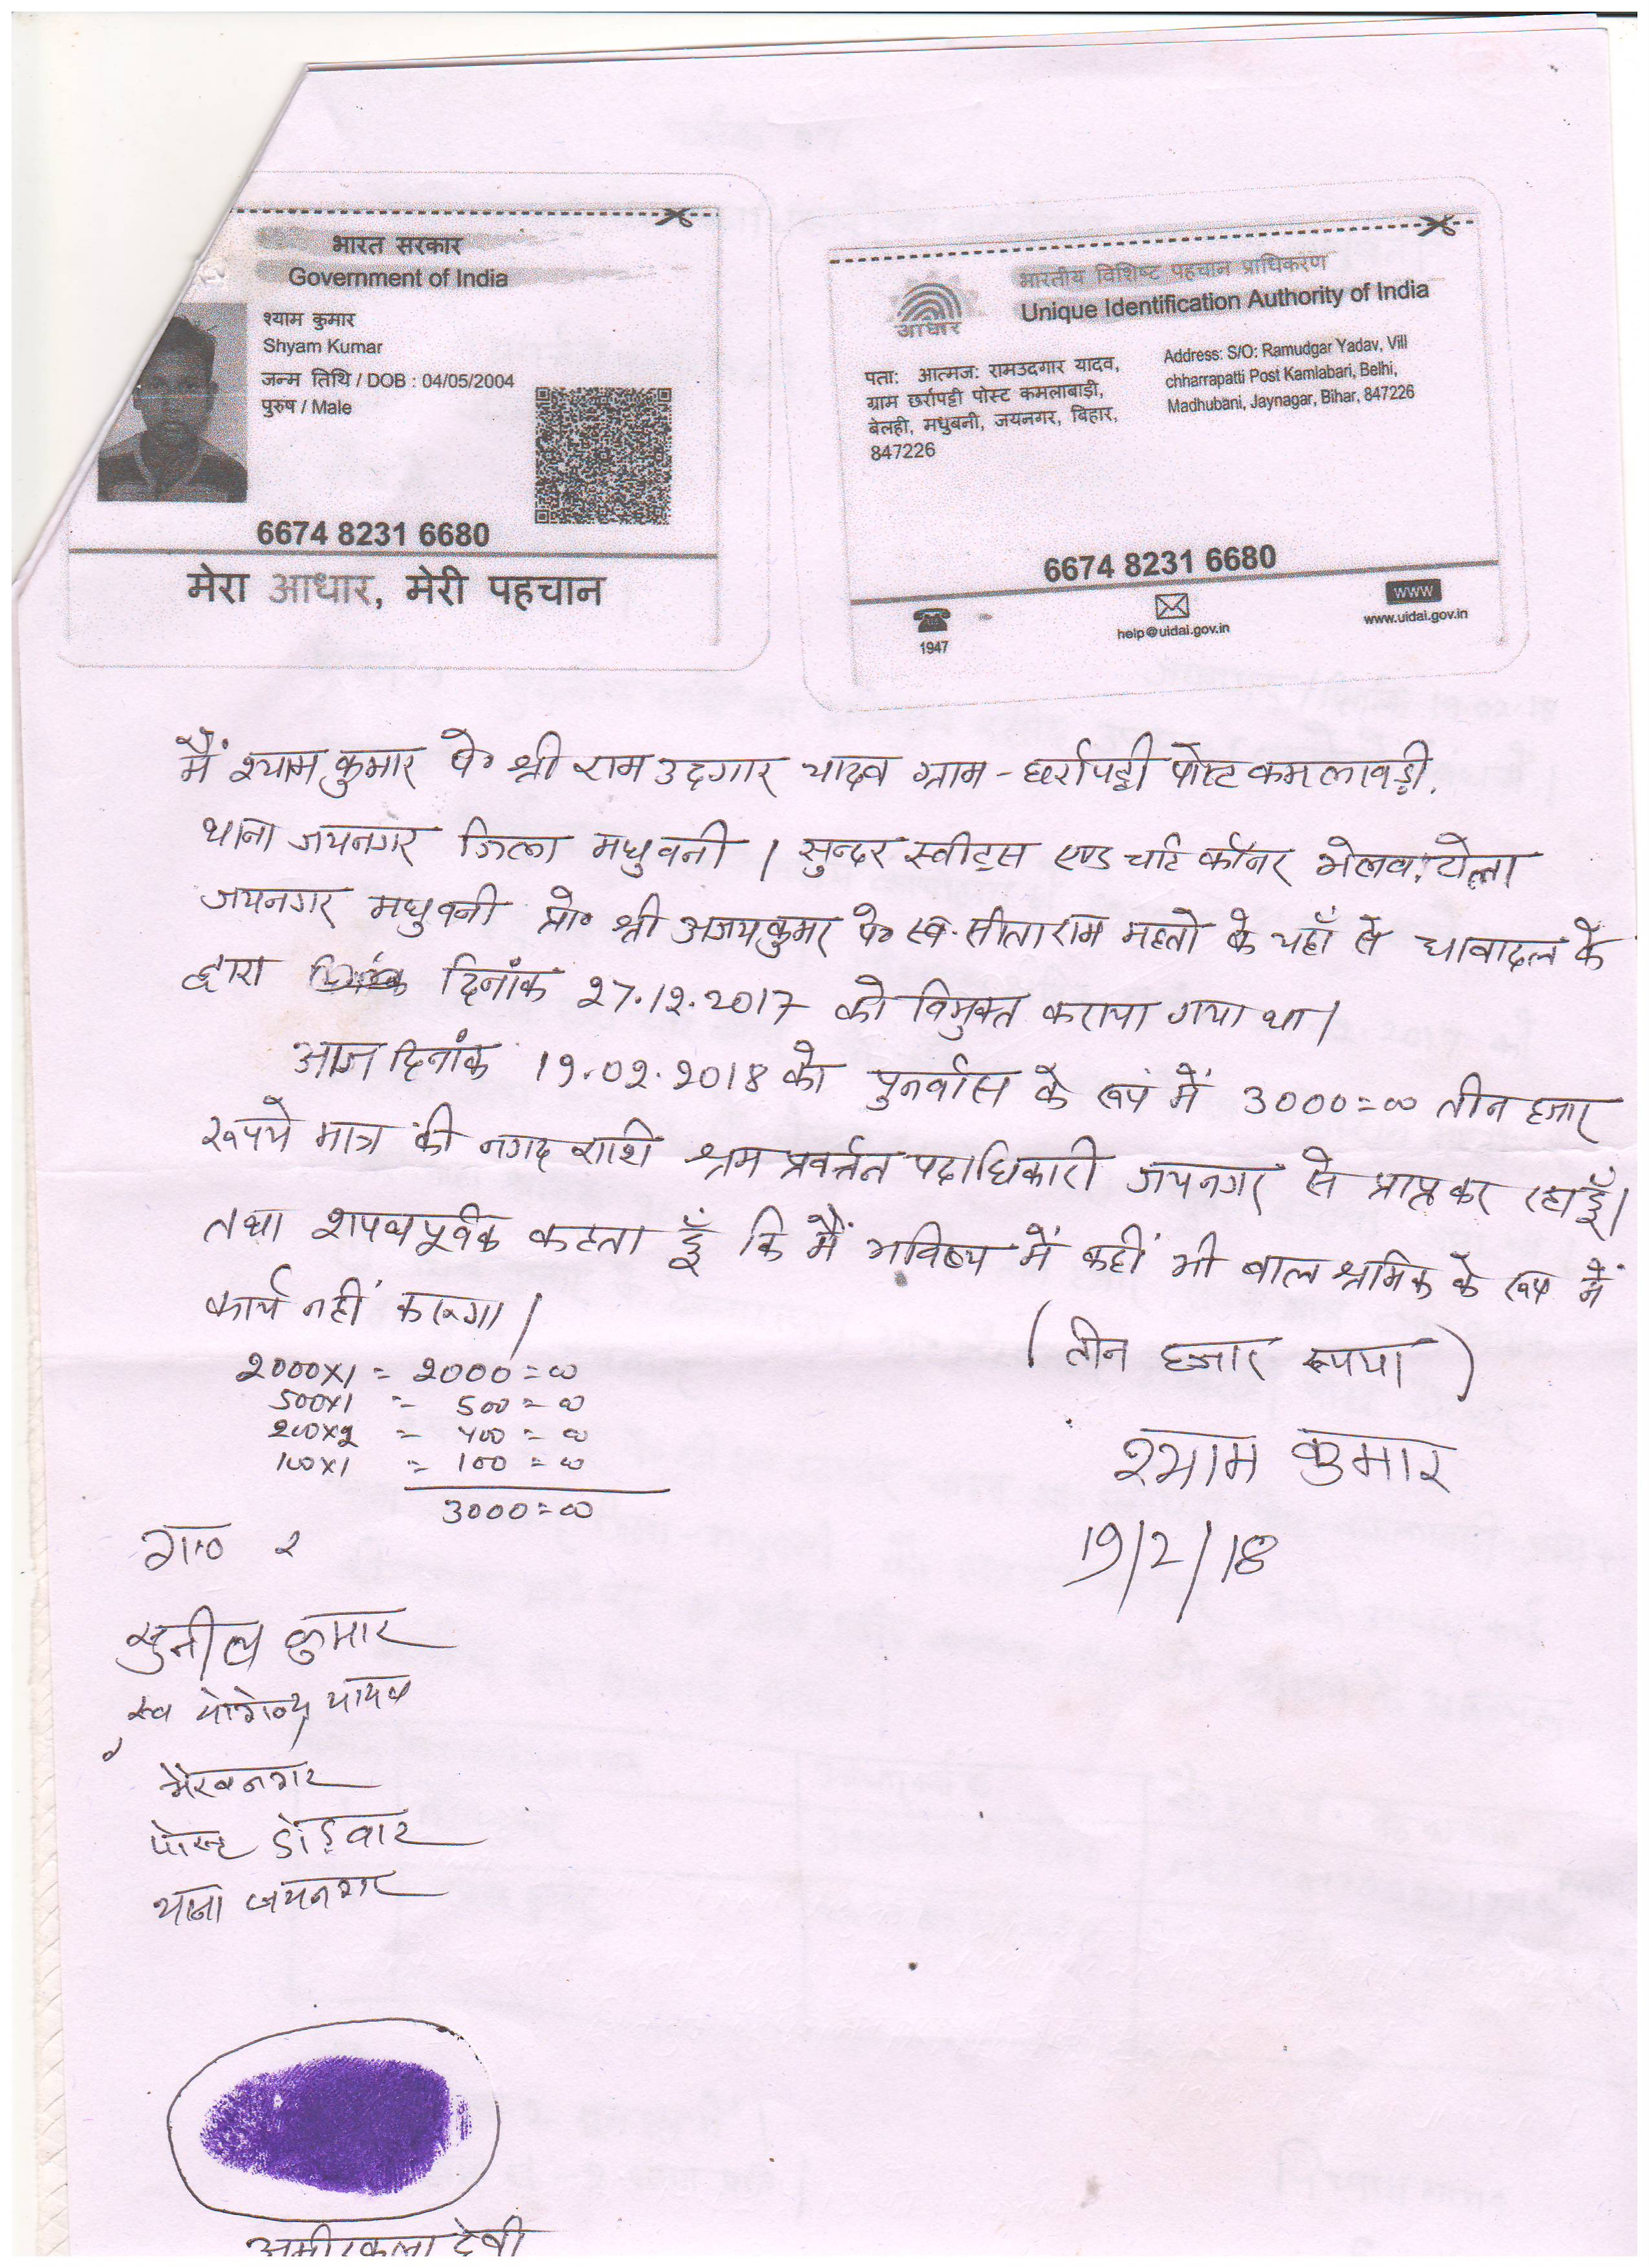 भारत सरकार
Government of India
श्याम कुमार
Shyam Kumar
जन्म तिथि / DOB : 04/05/2004
पुरुष / Male
6674 8231 6680
मेरा आधार, मेरी पहचान
भारतीय विशिष्ट पहचान प्राधिकरण
Unique Identification Authority of India
आधार
पता: आत्मज: रामउदगार यादव,
ग्राम छर्रापट्टी पोस्ट कमलाबाड़ी,
बेलही, मधुबनी, जयनगर, बिहार,
847226
Address: S/O: Ramudgar Yadav, Vill
chharrapatti Post Kamlabari, Belhi,
Madhubani, Jaynagar, Bihar, 847226
6674 8231 6680
1947
help@uidai.gov.in
www
www.uidai.gov.in
मैं श्याम कुमार पे० श्री राम उदगार यादव ग्राम - छर्रापट्टी पोस्ट कमलावड़ी.
थाना जयनगर जिला मधुवनी । सुन्दर स्वीट्स एण्ड चाट कॉनर भेलवा टोला
जयनगर मधुवनी प्रो० श्री अजय कुमार पे० स्व. सीताराम महतो के यहाँ से धावादल के
द्वारा दिनांक 27.12.2017 को विमुक्त कराया गया था।
आज दिनांक 19.02.2018 को पुनर्वास के रूप में 3000=00 तीन हजार
रूपये मात्र की नगद राशि श्रम प्रवर्त्तन पदाधिकारी जयनगर से प्राप्त कर रहा हूँ।
तथा शपथपूर्वक कहता हूँ कि मैं भविष्य में कहीं भी बाल श्रमिक के रूप में
कार्य नहीं करूगा।
(तीन हजार रूपया)
2000x1 = 2000=00
500x1 = 500=00
200x2 = 400=00
100x1 = 100=00
3000=00
श्याम कुमार
19/2/18
सुनील कुमार
स्व योगेन्द्र यादव
भैरवनगर
पोस्ट डोड़वार
थाना जयनगर
अमीरकला देवी